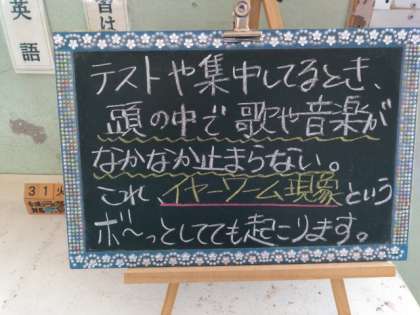 英語
テストや集中してるとき、
頭の中で歌や音楽が
なかなか止まらない。
これ、イヤーワーム現象という
ボ〜っとしてても起こります。
31火